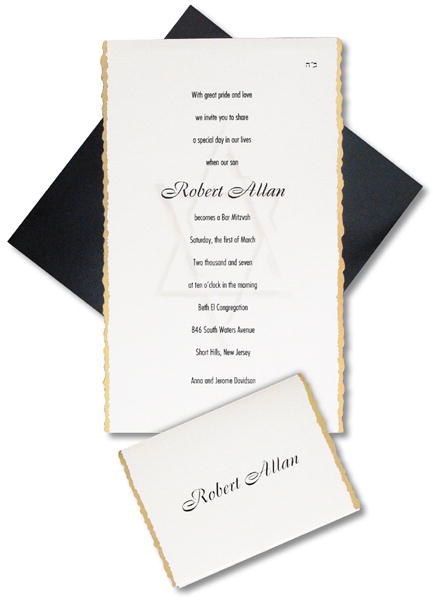 ב"ה
With great pride and love
we invite you to share
a special day in our lives
when our son
Robert Allan
becomes a Bar Mitzvah
Saturday, the first of March
Two thousand and seven
at ten o'clock in the morning
Beth El Congregation
846 South Waters Avenue
Short Hills, New Jersey
Anna and Jerome Davidson
Robert Allan